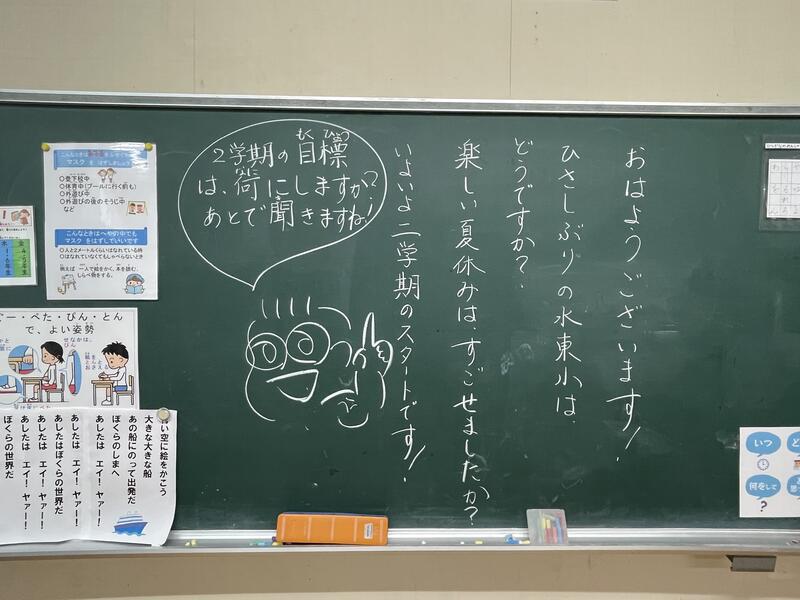 おはようございます!
ひさしぶりの水東小は
どうですか?
楽しい夏休みは、すごせましたか?
いよいよ二学期のスタートです!
2学期の目標
もくひょう
は、何にしますか?
あとで聞きますね。
マスク を はずしましょう
○登下校中
○体育中(プールに行く前も)
○外遊び中
○外遊びの後のそうじ中
など
こんなときはへやの中でも
マスク を はずしていいです
○人と2メートルくらいはなれている時
○はなれていなくてもしゃべらないとき
例えば 一人で絵をかく、本を読む、
しらべ物をする。
ぐー・ぺた・ぴん・とん
で、よい姿勢
せなかは、
ぴん
紙を
おさえる
い空に絵をかこう
大きな大きな船
あの船にのって出発だ
ぼくらのしまへ
あしたは エイ!ヤァー!
あしたは エイ!ヤァー!
あしたはぼくらの世界だ
あしたは エイ!ヤァー!
あしたは エイ!ヤァー!
ぼくらの世界だ
いつ
何をして
?